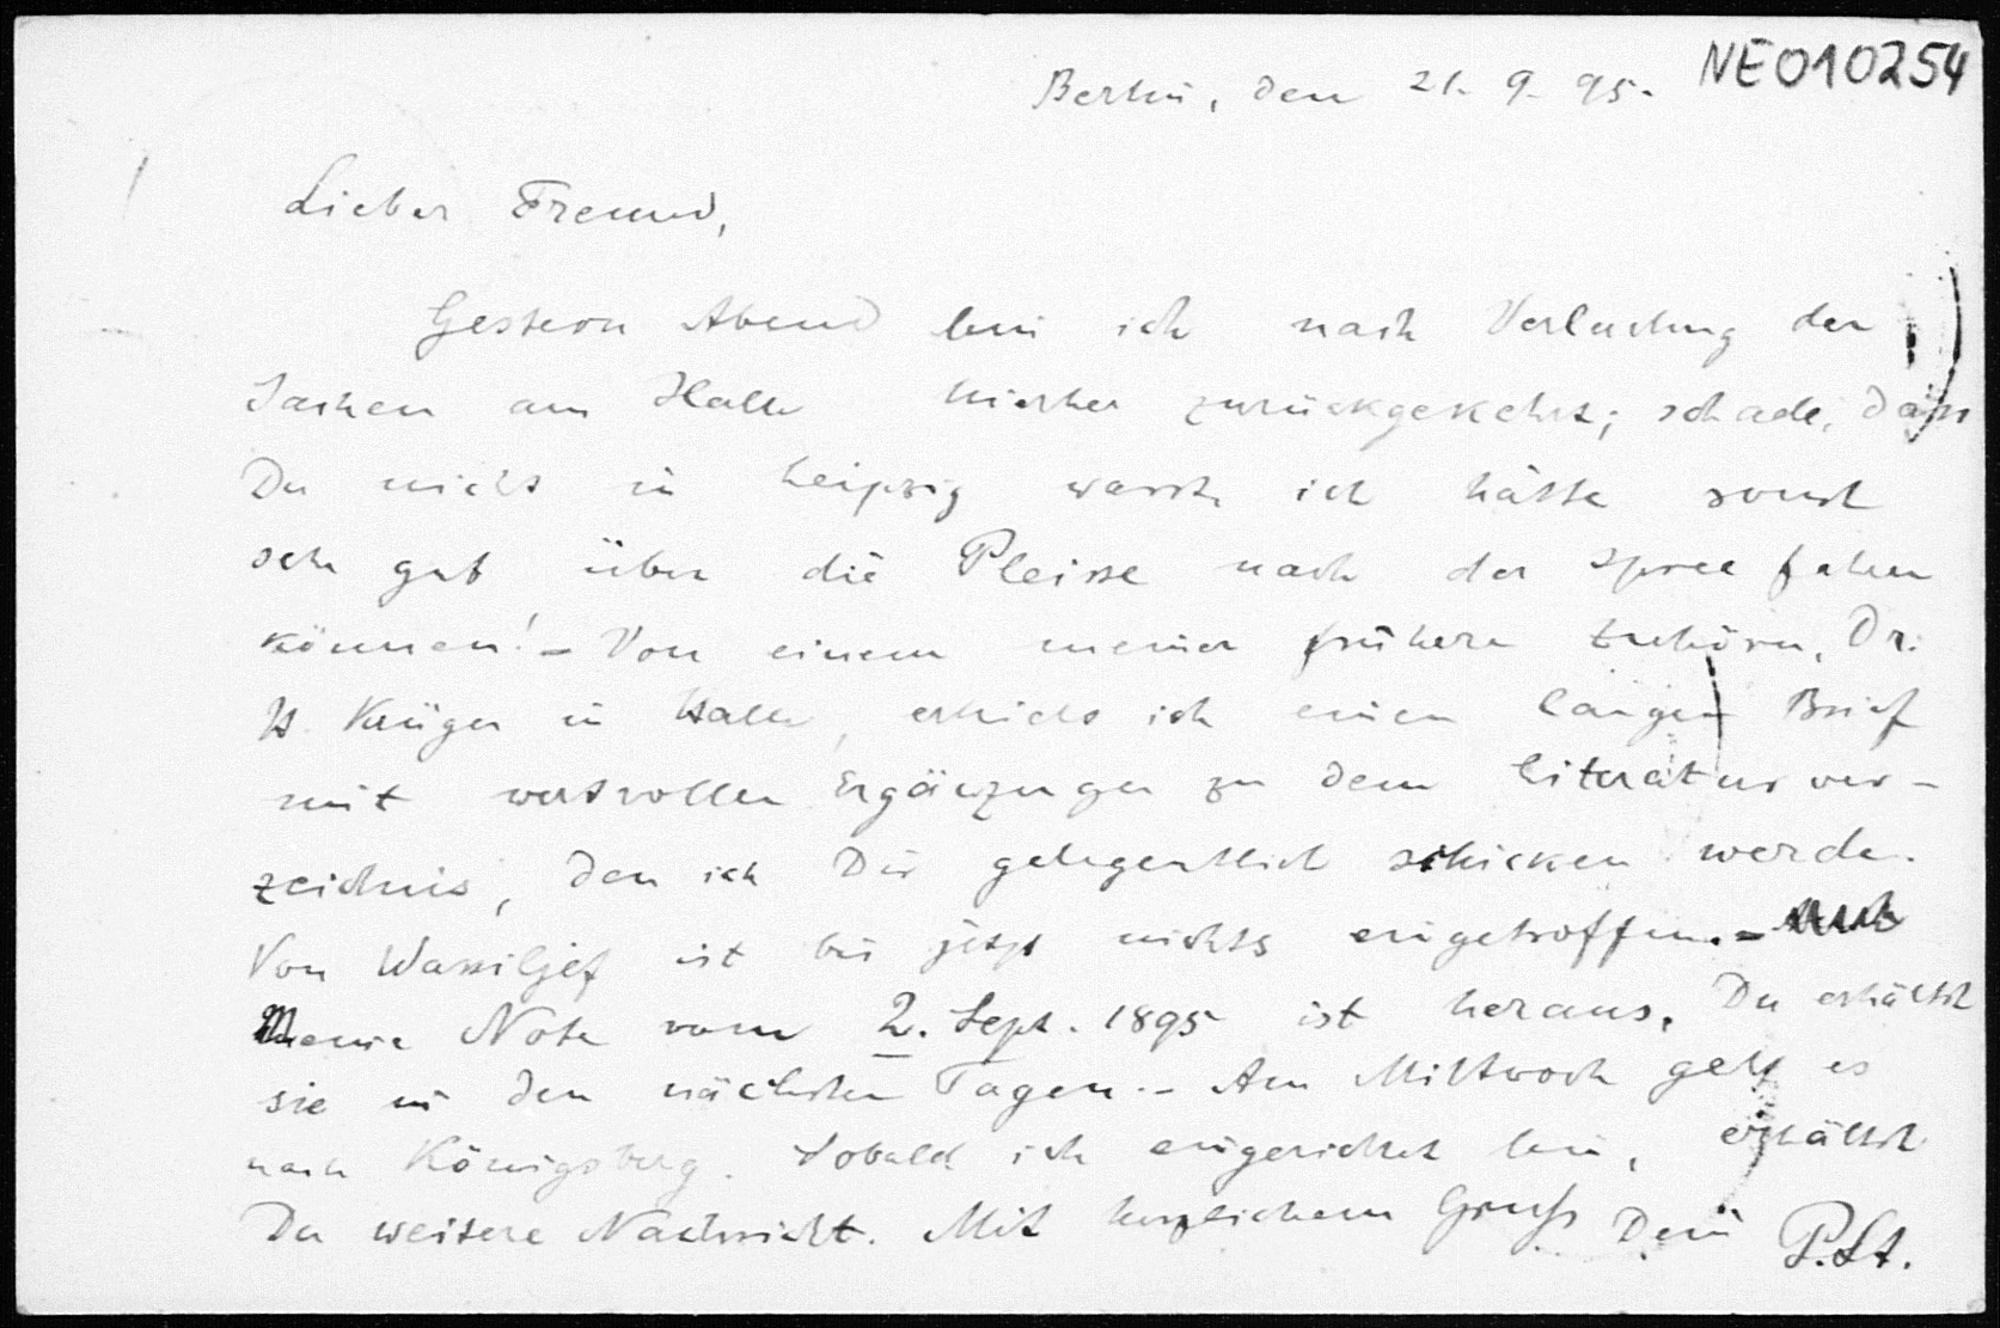 NE010254
Berlin, den 21. 9. 95.
Lieber Freund,
Gestern Abend bin ich nach Verladung der
Sachen aus Halle hierher zurückgekehrt; schade, dass
Du nicht in Leipzig warst, ich hätte sonst
sehr gut über die Pleisse nach der Spree fahren
können! - Von einem meiner früheren Zuhörer, Dr.
H. Krüger in Halle, erhielt ich einen langen Brief
mit wertvollen Ergänzungen zu dem Literaturver-
zeichnis, den ich Dir gelegentlich schicken werde.
Von Wassiljef ist bis jetzt nichts eingetroffen. -
Meine Note vom 2. Sept. 1895 ist heraus. Du erhältst
sie in den nächsten Tagen. - Am Mittwoch geht es
nach Königsberg. Sobald ich eingerichtet bin, erhältst
Du weitere Nachricht. Mit herzlichem Gruß Dein P. St.